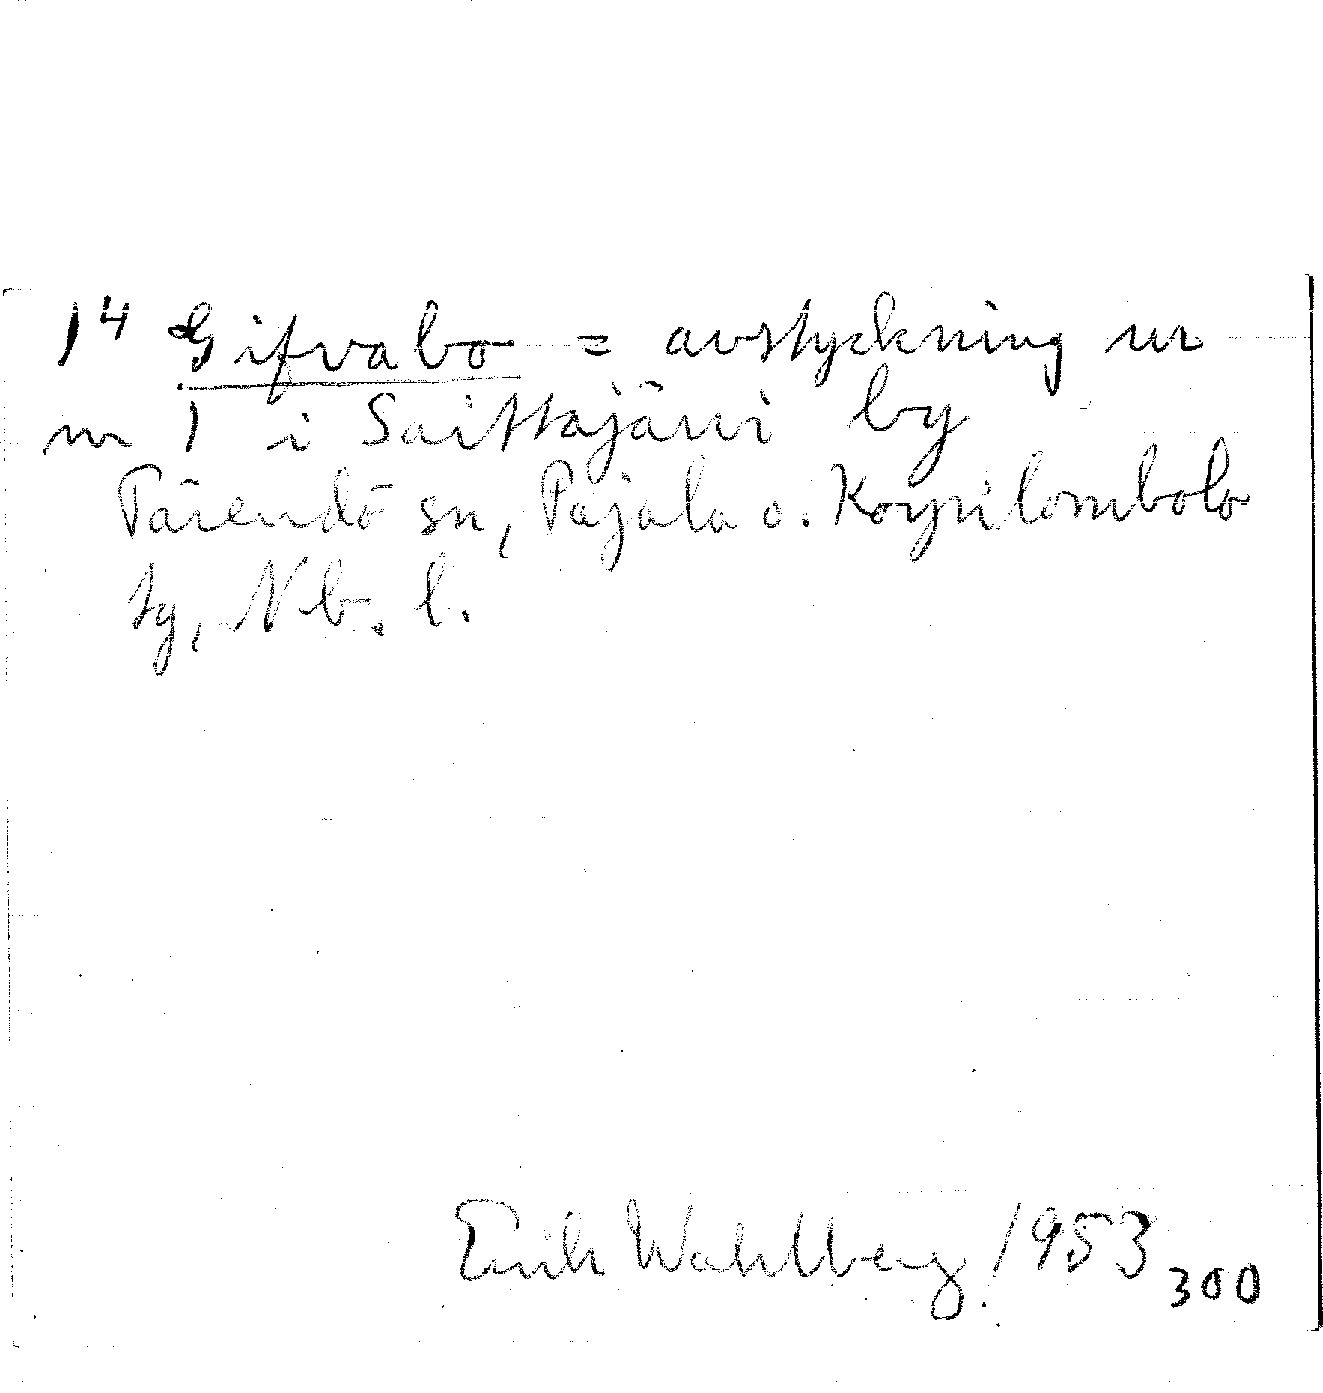 1⁴ Gifvabo = avstyckning ur
nr 1 i Saittajärvi by
Tärendö sn, Pajala o. Korpilombolo
tg, Nb. l.
Erik Wahlberg 1953
300